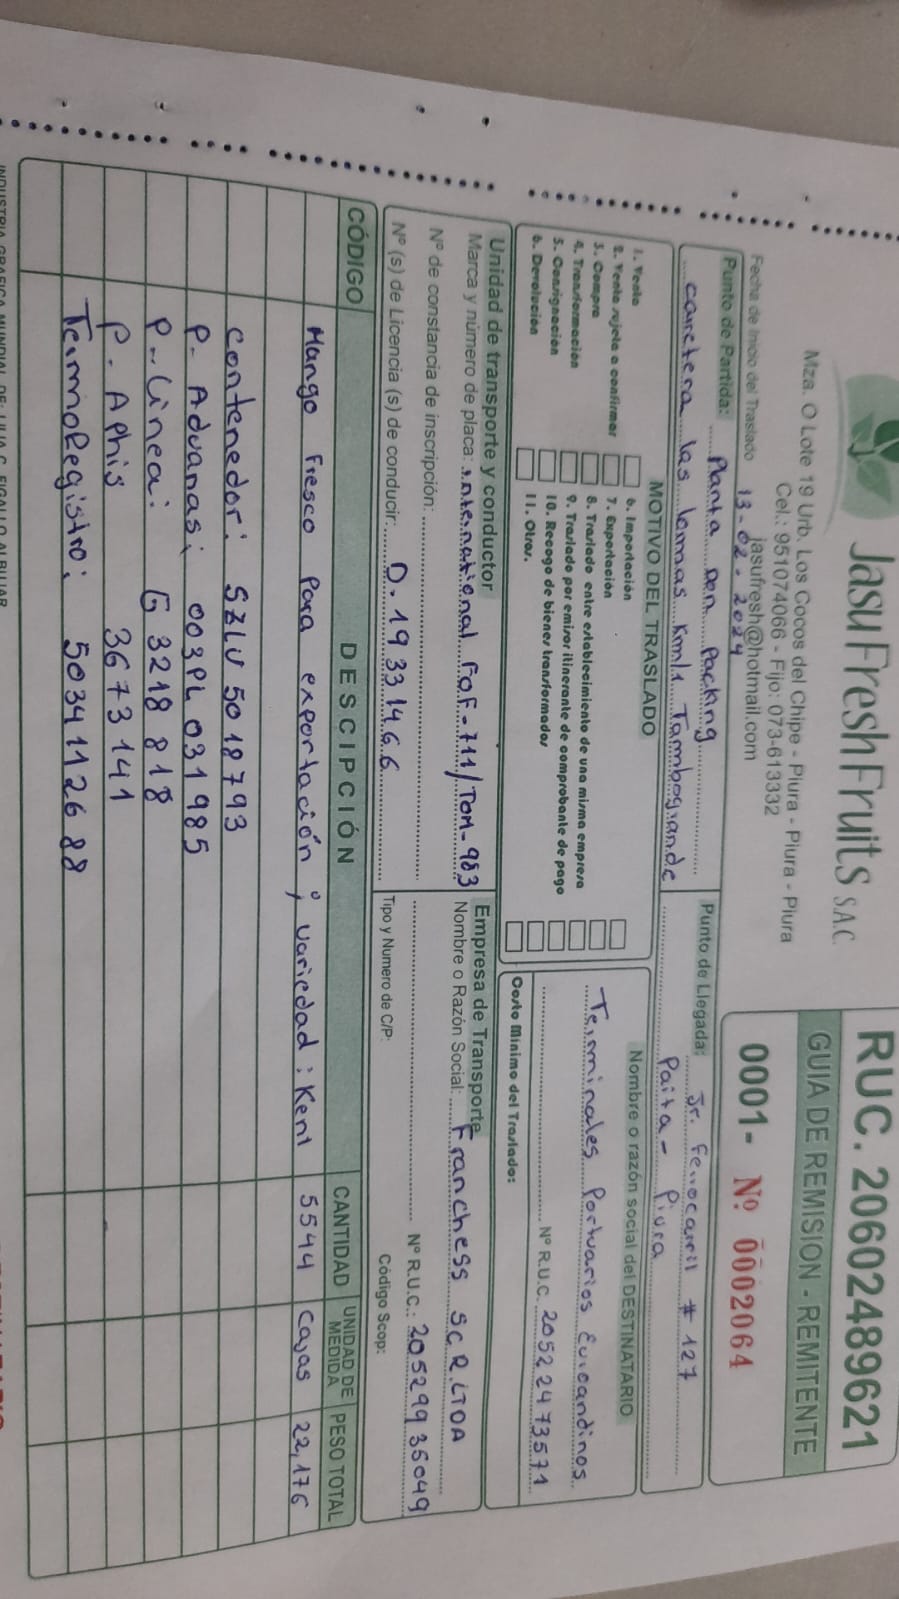 JasuFreshFruits S.A.C.
Mza. O Lote 19 Urb. Los Cocos del Chipe - Piura - Piura - Piura
Cel.: 951074066 - Fijo: 073-613332
jasufresh@hotmail.com
RUC. 20602489621
GUIA DE REMISION - REMITENTE
0001- Nº 0002064
Fecha de Inicio del Traslado 13-02-2024
Punto de Partida: Planta Don Packing
carretera las lomas Km/1 Tambogrande
Punto de Llegada: Jr. Ferrocarril # 127
Paita - Piura
MOTIVO DEL TRASLADO
1. Venta
2. Venta sujeta a confirmar
3. Compra
4. Transformación
5. Consignación
6. Devolución
6. Importación
7. Exportación
8. Traslado entre establecimiento de una misma empresa
9. Traslado por emisor itinerante de comprobante de pago
10. Recogo de bienes transformados
11. Otros.
Nombre o razón social del DESTINATARIO
Terminales Portuarios Euroandinos
Nº R.U.C. 20522473571
Costo Mínimo del Traslado:
Unidad de transporte y conductor
Marca y número de placa: International F0F-711/TOM-983
Nº de constancia de inscripción:
Nº (s) de Licencia (s) de conducir: D.19331466
Empresa de Transporte
Nombre o Razón Social: Franchess SCR.LTDA
Nº R.U.C.: 20529935049
Tipo y Numero de C/P:
Código Scop:
CÓDIGO DESCIPCIÓN CANTIDAD UNIDAD DE MEDIDA PESO TOTAL
Mango Fresco Para exportación; variedad: Kent 5544 Cajas 22,176
Contenedor: SZLU 5018793
P. Aduanas: 003PL031985
P. Linea: G3218818
P. Aphis 3673141
TermoRegistro: 5034112688